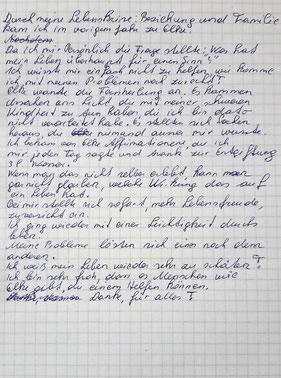 Durch meine Lebenskrise: Beziehung und Familie
kam ich im vorigem Jahr zu Elke.
Da ich mir Persönlich die Frage stellte: „Was hat
mein Leben überhaupt für einen Sinn?“
Ich wusste mir einfach nicht zu helfen, wie komme
ich mit meinen Problemen noch zurecht?
Elke wande die Feinheilung an. Es kammen
Ursachen ans Licht, die mit meiner schweren
Kindheit zu tun haben, die ich bis dato
nicht verarbeitet habe. Es stellten sich Daten
heraus, die niemand ausser mir wusste.
Ich bekam von Elke Affirmationen, die ich
mir jeden Tag sagte und trank zur Entgiftung
3 l. Wasser.
Wenn man das nicht selber erlebt, kann man
gar nicht glauben, welche Wirkung das auf
ein Leben hat.
Bei mir stellte sich sofort, mehr Lebensfreude,
zuversicht ein.
Ich ging wieder mit einer Leichtigkeit durchs
Leben.
Meine Probleme lösten sich eine nach dem
anderen.
Ich weiß mein Leben wieder sehr zu schätzen!
Ich bin sehr froh, dass es Menschen wie
Elke gibt, die einem Helfen können.
Danke, für alles!